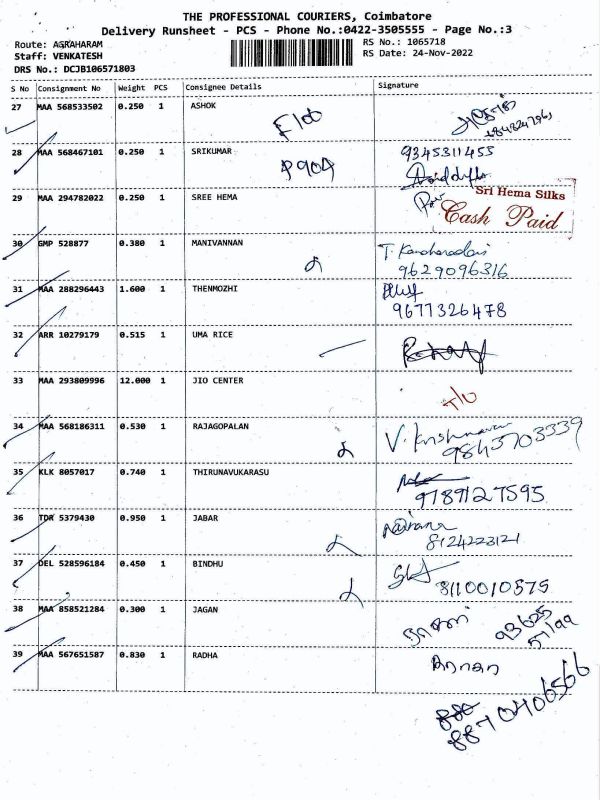 THE PROFESSIONAL COURIERS, Coimbatore
Delivery Runsheet - PCS - Phone No.:0422-3505555 - Page No.:3
Route: AGRAHARAM
RS No.: 1065718
Staff: VENKATESH
RS Date: 24-Nov-2022
DRS No.: DCJB106571803
S No Consignment No Weight PCS Consignee Details Signature
27 MAA 568533502 0.250 1 ASHOK
28 MAA 568467101 0.250 1 SRIKUMAR 9345311455
P904
29 MAA 294782022 0.250 1 SREE HEMA Sri Hema Silks
Cash Paid
30 GMP 528877 0.380 1 MANIVANNAN
9629096316
31 MAA 288296443 1.600 1 THENMOZHI
9677326478
32 ARR 10279179 0.515 1 UMA RICE
33 MAA 293809996 12.000 1 JIO CENTER
34 MAA 568186311 0.530 1 RAJAGOPALAN
9843703339
35 KLK 8057017 0.740 1 THIRUNAVUKARASU
9789127595
36 TDR 5379430 0.950 1 JABAR
8124223121
37 DEL 528596184 0.450 1 BINDHU 8110010575
38 MAA 858521284 0.300 1 JAGAN
39 MAA 567651587 0.830 1 RADHA
8870406566